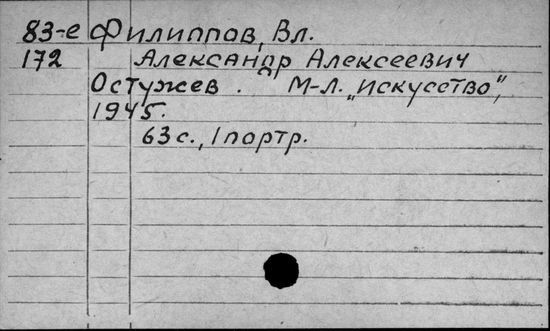 83-е Филиппов, Вл.
172 Александр Алексеевич
Остужев. М-Л. „Искусство“,
1945.
63 с., 1 портр.